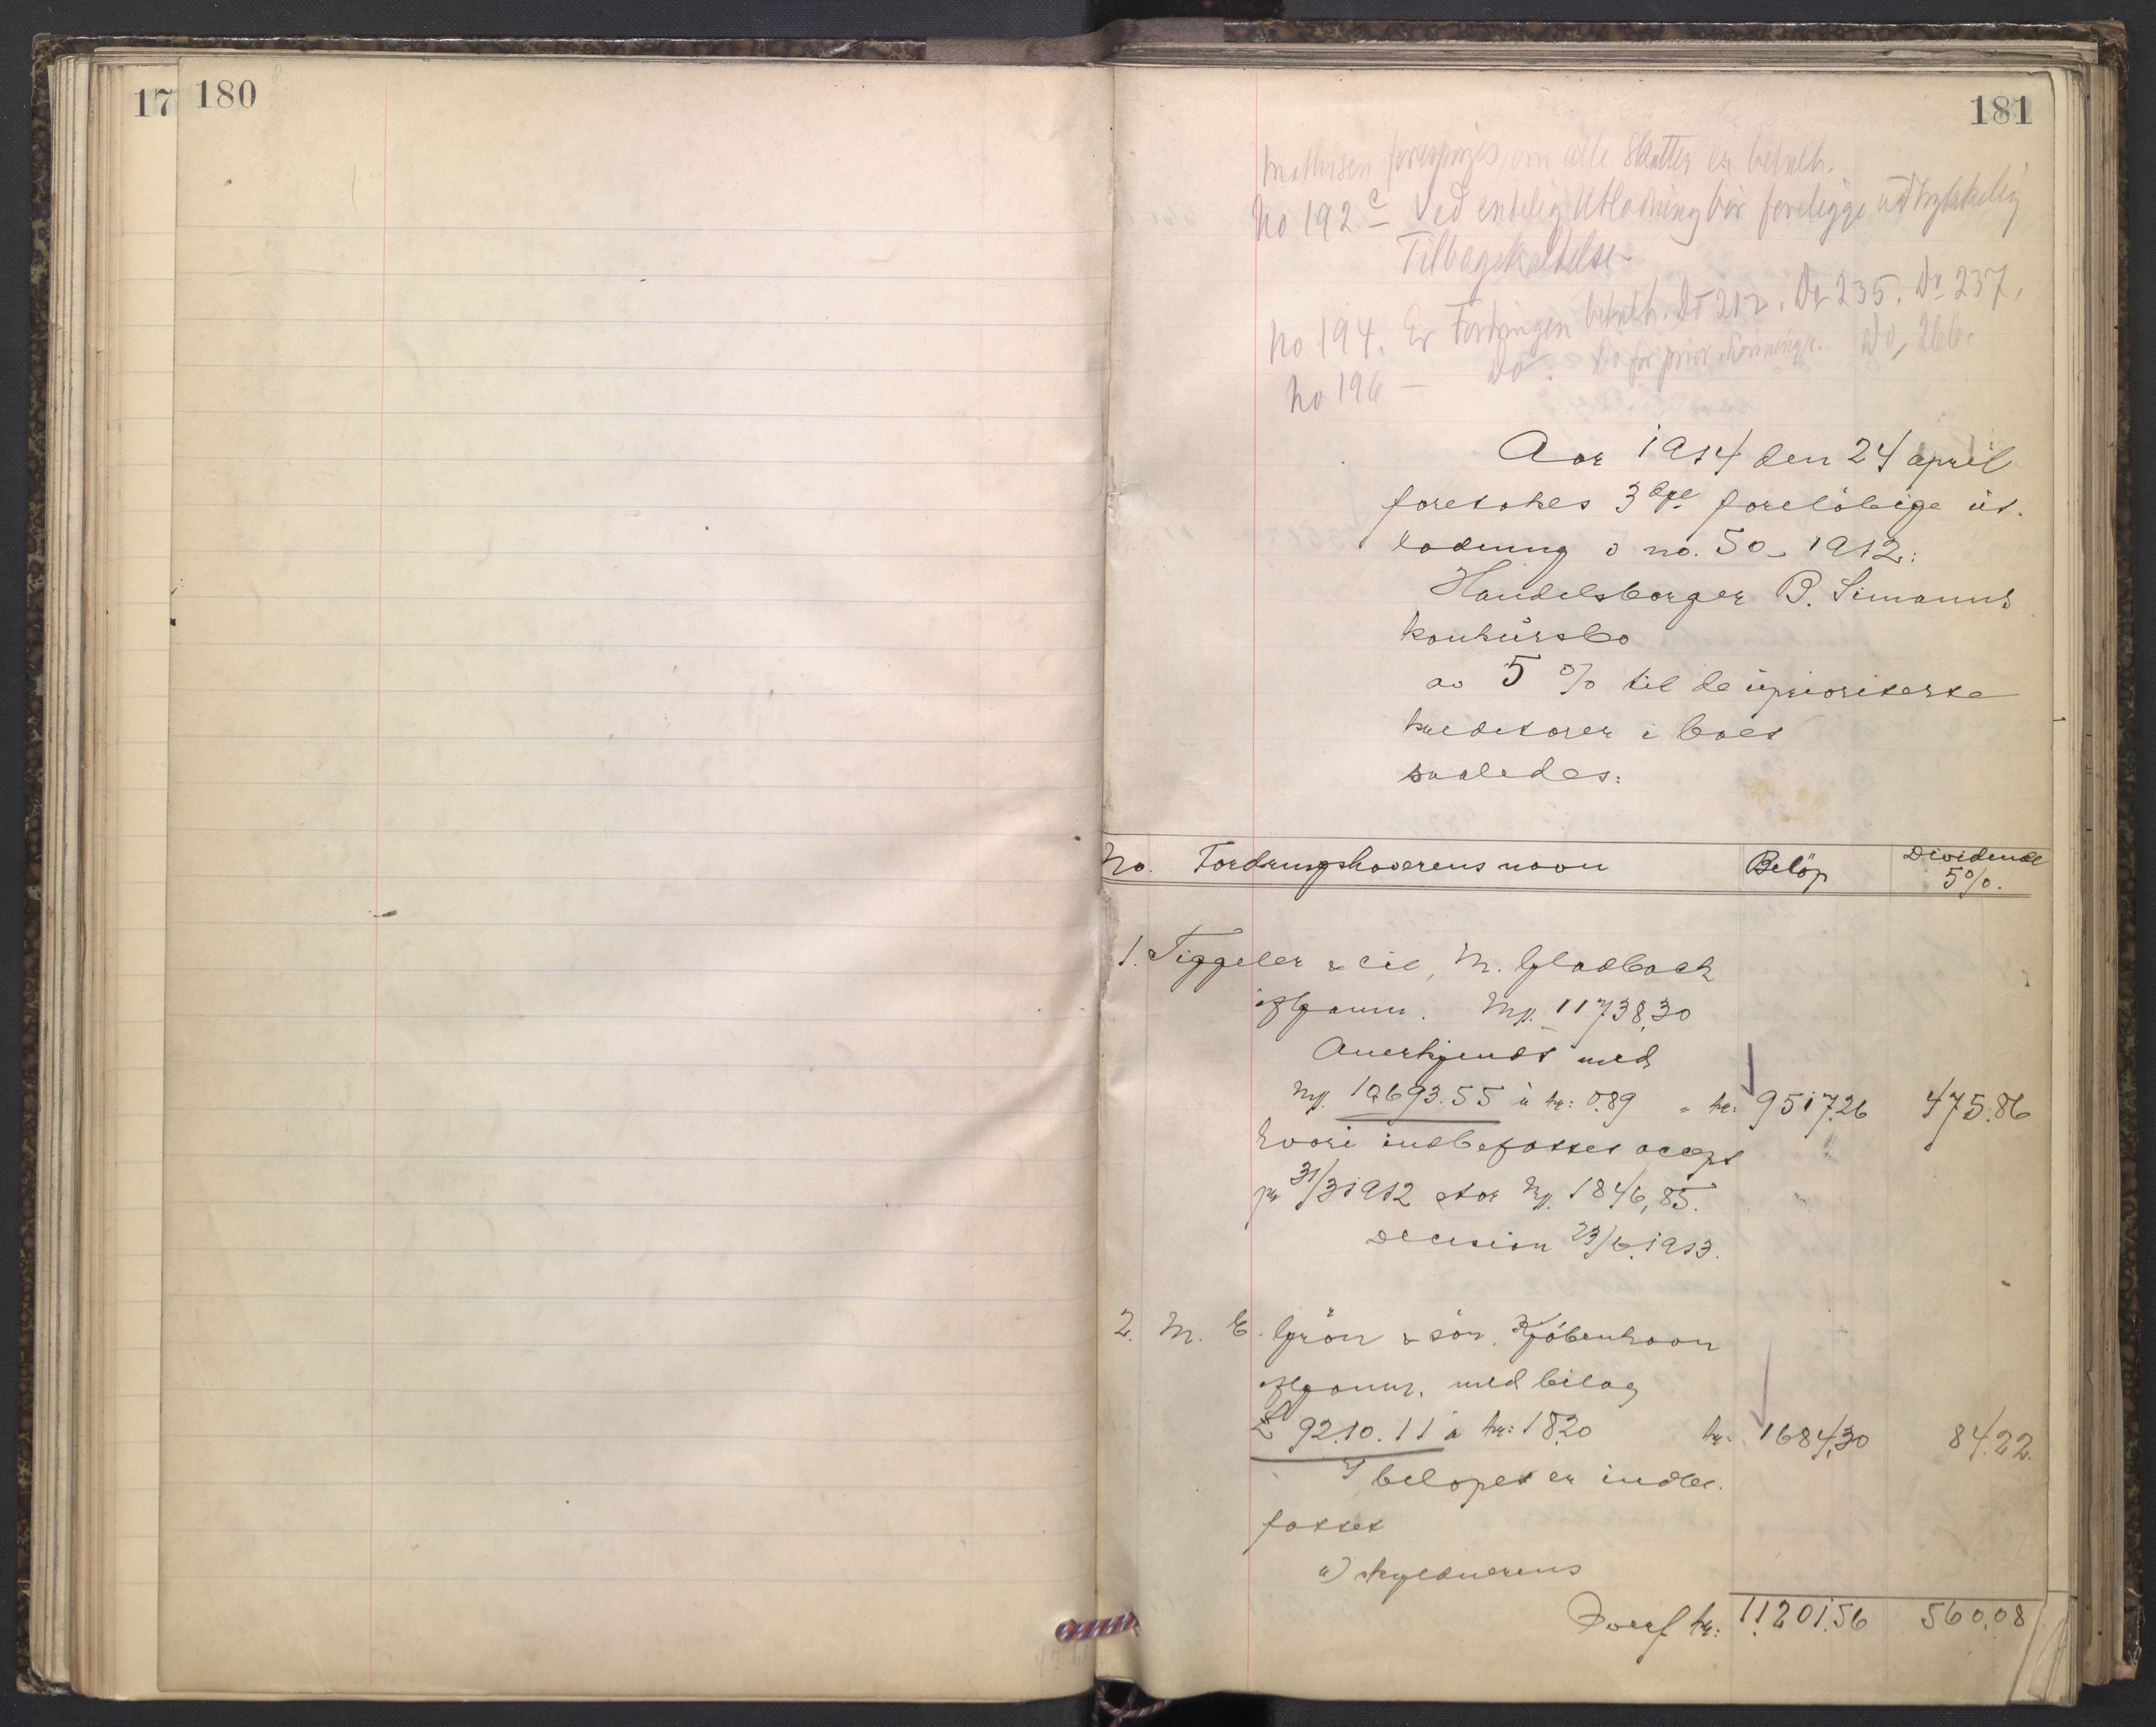 17 180
181
Mathisen forespørges, om alle Skatter er betalt.
No 192 c Ved endelig Utlodning bør foreligge udtrykkelig
Tilbagekaldelse
No 194. Er Fordringen betalt. Do 212. Do 235. Do 237.
No 196 — Do. Do for prior. Do, 266.
Aar 1914 den 24 april
foretokes 3dje foreløbige ut-
lodning i no. 50 - 1912:
Handelsborger B. Simanns
konkursbo
av 5 % til de uprioriterte
kreditorer i boet
saaledes:
No. Fordringshaverens navn Beløp Dividende
5%.
1. Tiggeler & Cie, M. Gladbach
iflg anm. Mk. 11738,30
Anerkjendt med
Mk. 10693.55 à kr: 0.89 - kr: 9517.26 475.86
hvori indbefattet accept
pr 31/3 1912 stor Mk. 1846,85.
Decision 23/6.1913.
2. M. E. Grön & sön. Kjøbenhavn
iflg anm. med bilag
£ 92.10.11 à kr: 18.20 kr. 1684,30 84.22.
I beløpet er indbe-
fattet
a) skyldnerens
Overf. kr: 11201.56 560.08